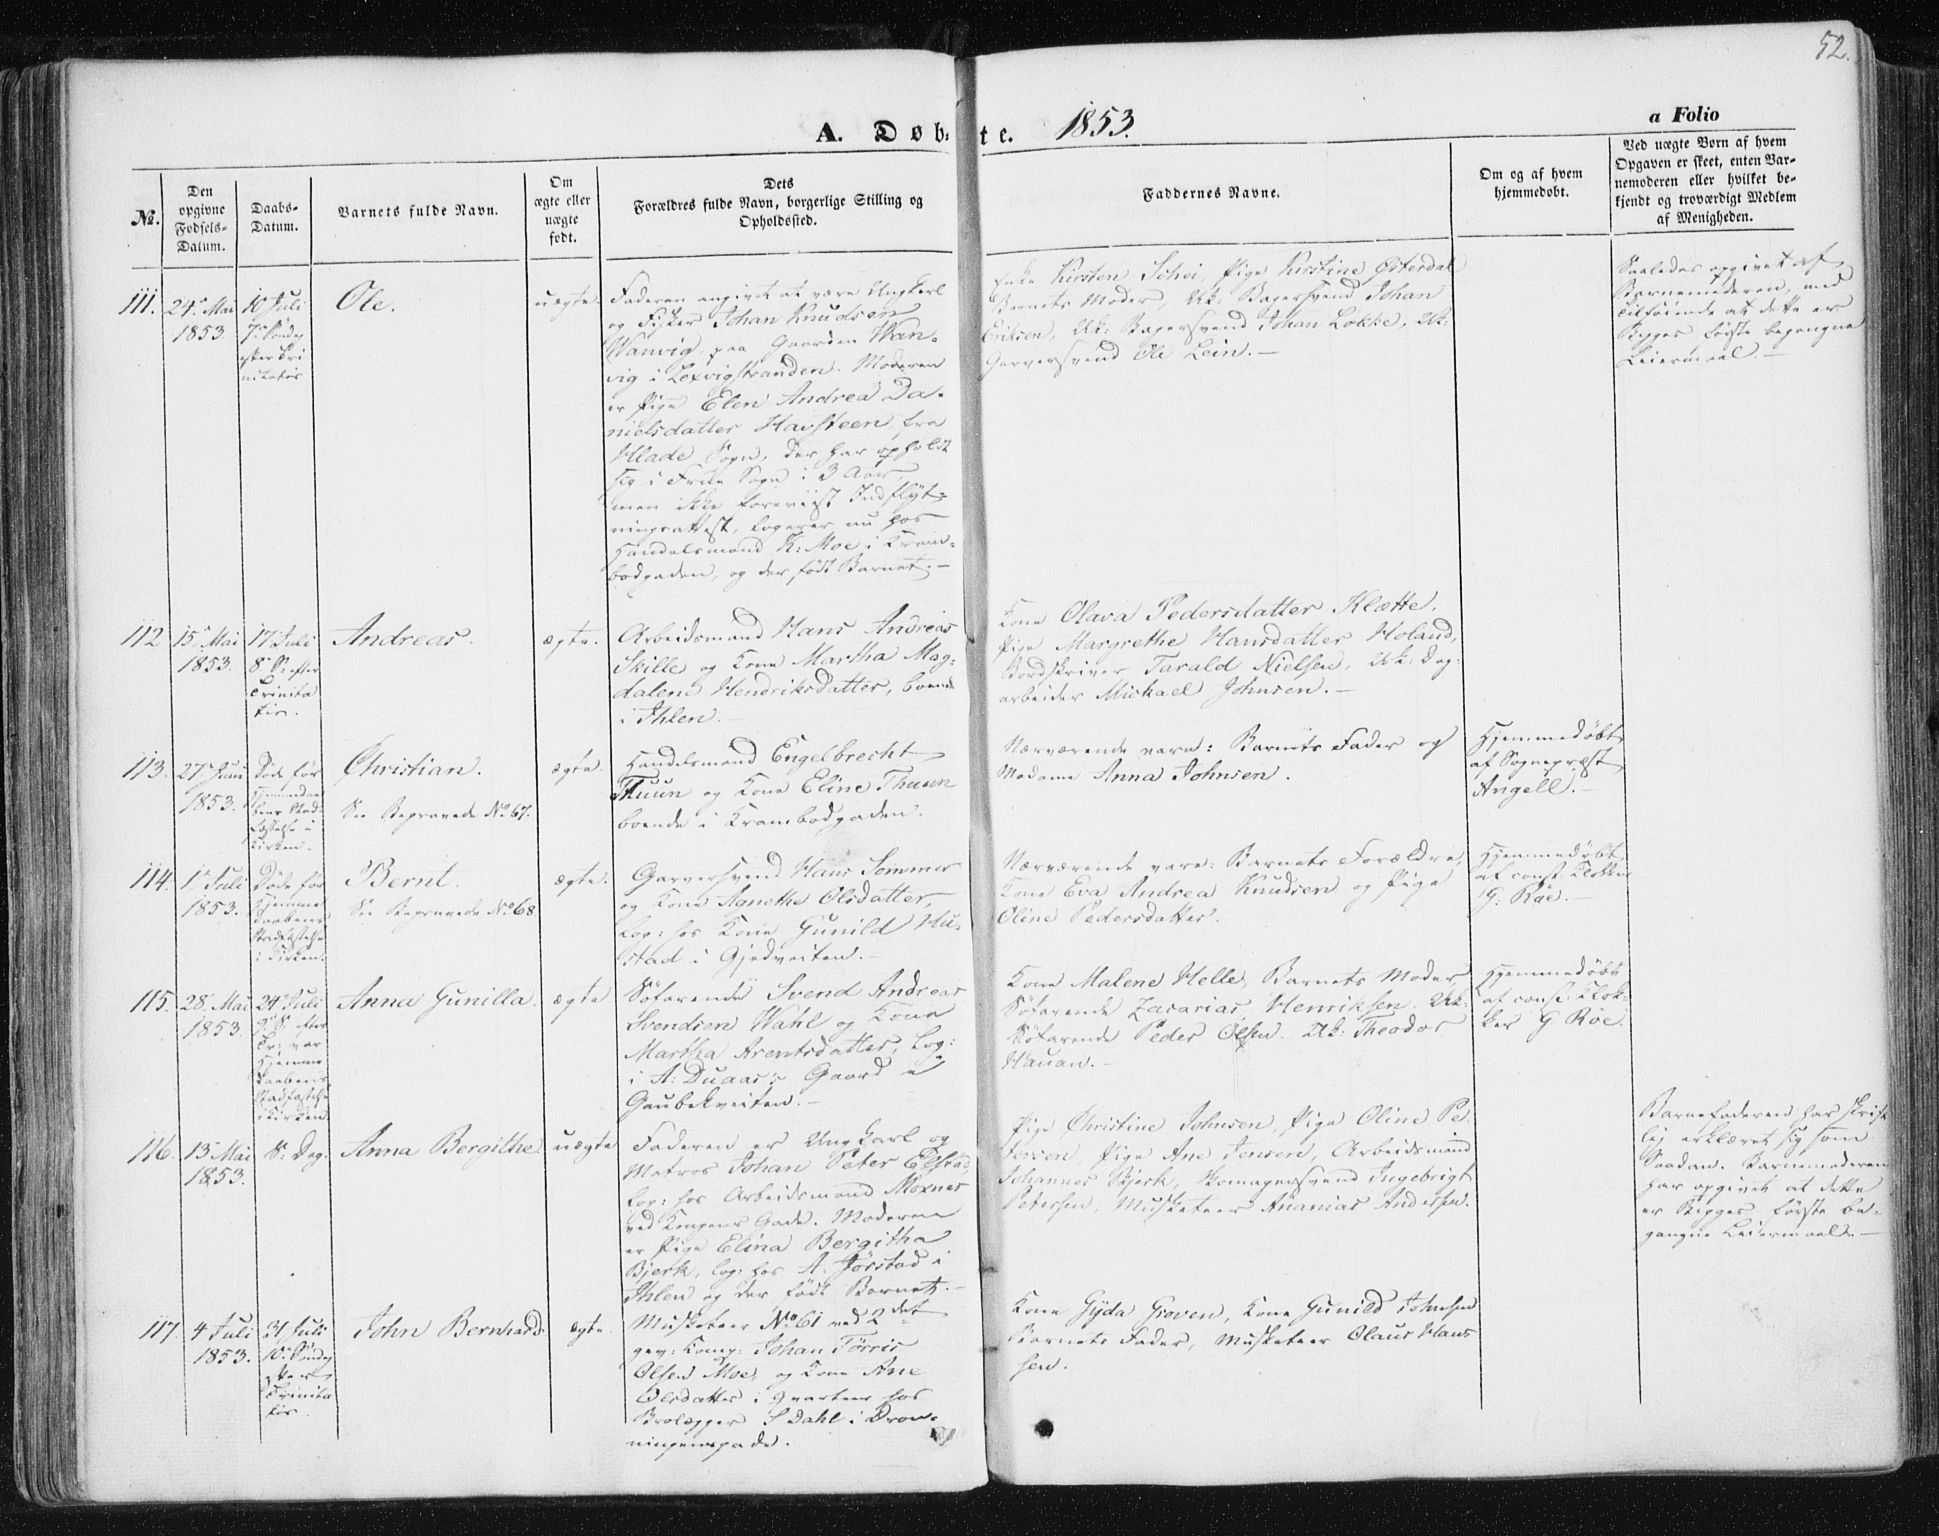 52.
A. Døbte. 1853.
a Folio
No.
Den opgivne Fødsels-Datum.
Daabs-Datum.
Barnets fulde Navn.
Om ægte eller uægte født.
Dets Forældres fulde Navn, borgerlige Stilling og Opholdssted.
Faddernes Navne.
Om og af hvem hjemmedøbt.
Ved uægte Børn af hvem Opgaven er skeet, enten Barnemoderen eller hvilket bekjendt og troværdigt Medlem af Menigheden.
111.
24. Mai
1853
10 Juli
7. Søndag
efter Tri
nitatis
Ole.
uægte.
Faderen angivet at være Ungkarl
og Fisker Johan Knudsen
Wanvig, paa Gaarden Wan-
vig i Lexvigstranden. Moderen
er Pige Elen Andrea Da-
nielsdatter Havsteen, fra
Hlade Sogn, der har opholdt
sig i Frue Sogn i 3 Aar,
men ikke foreviist Indflyt-
ningsattest, logerer nu hos
Handelsmand K: Moe i Kram-
bodgaden, og der født Barnet.-
Enke Kirsten Schei, Pige Kirstine Østerdal
Barnets Moder, Uk: Bagersvend Johan
Eriksen, Uk: Bagersvend Johan Løkke, Uk:
Garversvend Ole Lein.-
Saaledes opgivet af
Barnemoderen, med
Tilføiende at dette er
Begges første begangne
Leiermaal.-
112
15. Mai
1853.
17 Juli
8. S: efter
Trinita
tis.
Andreas.
ægte.
Arbeidsmand Hans Andreas
Skille og Kone Martha Mag-
dalene Hendriksdatter, boende
i Ihlen.-
Kone Olava Pedersdatter Klætte,
Pige Margrethe Hansdatter Holand,
Bordskriver Tarald Nielsen, Uk: Dag-
arbeider Michael Johnsen.-
113.
27. Juni
1853.
Døde før
Hjemmedaa
bens Stad
fæstelse i
Kirken.
Christian.
See Begravede No 67.
ægte.
Handelsmand Engelbrecht
Thuun og Kone Eline Thuun
boende i Krambodgaden.
Nærværende vare: Barnets Fader og
Madame Anna Johnsen.
Hjemmedøbt
af Sognepræst
Angell.-
114.
1. Juli
1853.
Døde før
Hjemme
daabens
Stadfæstelse
i Kirken.
Bernt.
See Begravede No 68
ægte.
Garversvend Hans Sommer
og Kone Agnethe Olsdatter,
Log: hos Kone Gunild Hu-
stad i Gjedveiten.-
Nærværende vare: Barnets Forældre,
Kone Eva Andrea Knudsen og Pige
Oline Pedersdatter.
Hjemmedøbt
af const Klokker
G. Røe.-
115.
28. Mai
1853.
24. Juli
9. S. efter
Tr: var
Hjemme
daabens
Stadfæstelse
i Kirken
Anna Gunilla.
ægte
Søfarende Svend Andreas
Svendsen Wahl og Kone
Martha Arentsdatter, Log:
i A: Duaas's Gaard i
Gaubekveiten.-
Kone Malene Helle, Barnets Moder,
Søfarende Zacarias Henriksen. Uk:
Søfarende Peder Olsen. Uk: Theodor
Hauan.-
Hjemmedøbt
af const: Klok-
ker G. Røe.
116.
13. Mai
1853.
S: Dag.
Anna Bergithe.
uægte
Faderen er Ungkarl og
Matros Johan Peter Elstad
Log: hos Arbeidsmand Moxnes
ved Kongens Gade. Moderen
er Pige Elina Bergitha
Bjerk, log: hos A. Jørstad i
Ihlen og der født Barnet.-
Pige Christine Johnsen, Pige Oline Pe-
tersen, Pige Ane Jensen, Arbeidsmand
Johannes Bjerk, Skomagersvend Ingebrigt
Petersen, Musketeer Ananias Andersen.
Barnefaderen har skrift
lig erklæret sig som
Saadan. Barnemoderen
har opgivet at dette
er Begges første be-
gangne Leiermaal.-
117.
4 Juli
1853.
31 Juli
10. Søndag
efter
Trinita
tis.
John Bernhard.
ægte.
Musketeer No 61 ved 2det
gev: Komp: Johan Tørris
Olsen Moe, og Kone Ane
Olsdatter i Qvarteer hos
Brolægger S Dahl i Dron-
ningensgade.
Kone Gyda Groven, Kone Gunild Johnsen
Barnets Fader, Musketeer Olaus Hans
sen.